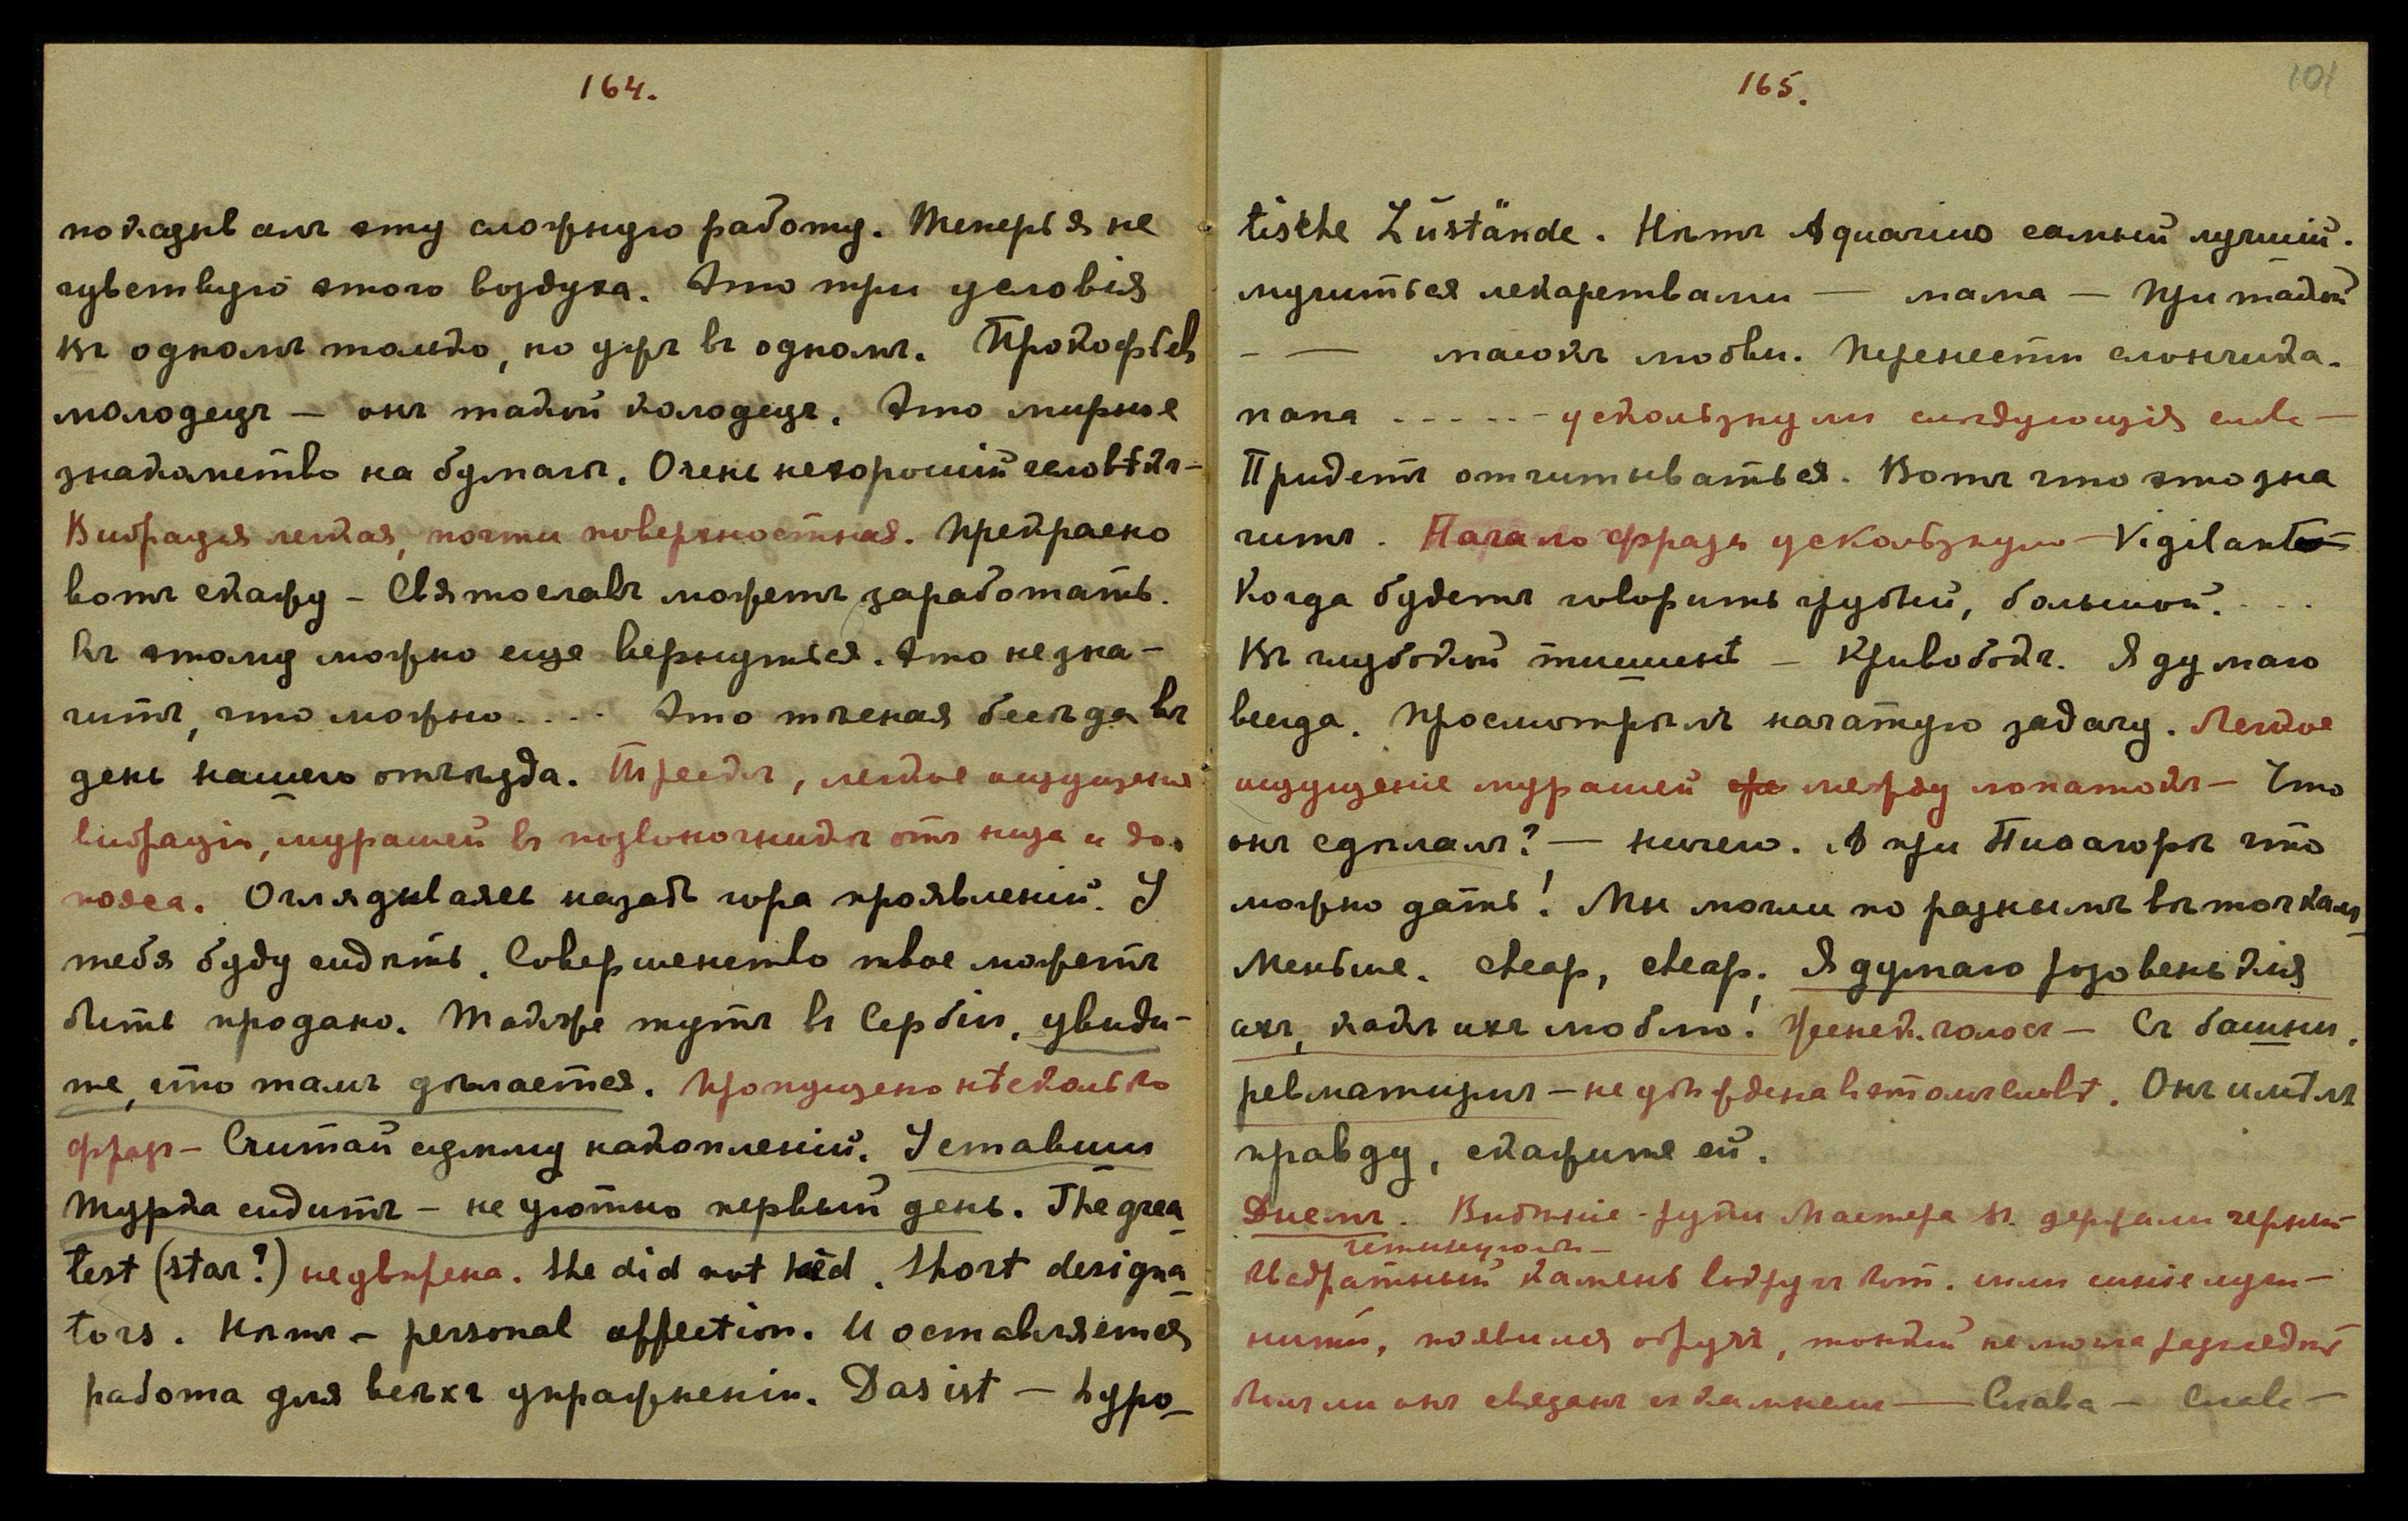 164.
показывалъ эту сложную работу. Теперь я не
чувствую этого воздуха. Это три условія
въ одномъ только, но ужъ въ одномъ. Прокофьев
молодецъ — онъ такой колодецъ. Это мирное
знакомство на бумагѣ. Очень нехорошій человѣкъ —
Вибрація легкая, почти поверхностная. Прекрасно
вотъ скажу — Святославъ можетъ заработать.
Къ этому можно еще вернуться. Это не зна-
читъ, что можно.... Это тѣсная бесѣда въ
день нашего отъѣзда. Трескъ, легкое ощущение
вибраціи, мурашей въ позвоночникѣ отъ низа и до
пояса. Оглядываясь назадъ гора проявленій. У
тебя буду сидѣть. Совершенство твое можетъ
быть продано. Также тутъ въ Сербіи, увиди-
те, что тамъ дѣлается. Пропущено нѣсколько
фразъ — Считай сумму накопленій. Уставши
Турка сидитъ — не уютно первый день. The grea
test (star?) не увѣрена. She did not . Short designa
tors. Нѣтъ — personal affection. И оставляется
работа для всѣхъ упражненій. Das ist — hypo-
165.
101
tische Züstände. Нѣтъ Aquarius самый лучшій.
мучиться лекарствами — мама — при такой
- — любви. Перенести слончика.
папа ------ ускользнули слѣдующія слова —
Придетъ отчитываться. Вотъ что это зна
читъ. Начало фразы ускользнуло — Vigilant
Когда будетъ говорить грубый, большой. ...
Въ глубокой тишинѣ — Кривобокъ. Я думаю
всегда. Просмотрѣлъ начатую задачу. Легкое
ощущеніе мурашей между лопатокъ — Что
онъ сдѣлалъ? — ничего. А при Пиѳагорѣ что
можно дать! Мы могли по разнымъ вѣточкамъ
Меньше. Cheap, cheap. Я думаю розовенькія
ахъ, какъ ихъ люблю! Женск. голосъ — Съ башни.
ревматизмъ — не убѣждена въ этомъ словѣ. Онъ имѣлъ
правду, скажите ей.
Днемъ. Видѣніе — руки Мастера К. держали черный
четырехуг.
квадратный камень вокругъ кот. шли синіе лучи —
нити, появился обручъ, тонкій не могла разглядѣть
былъ ли онъ связанъ съ камнемъ — Слава — Слава —